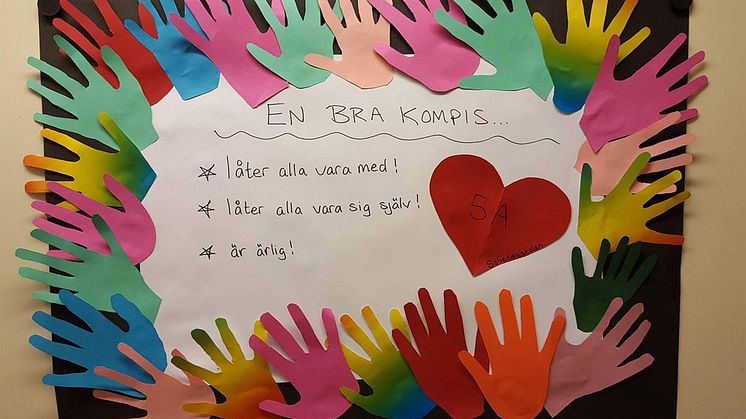 EN BRA KOMPIS...
låter alla vara med!
låter alla vara sig själv!
är ärlig!
5A